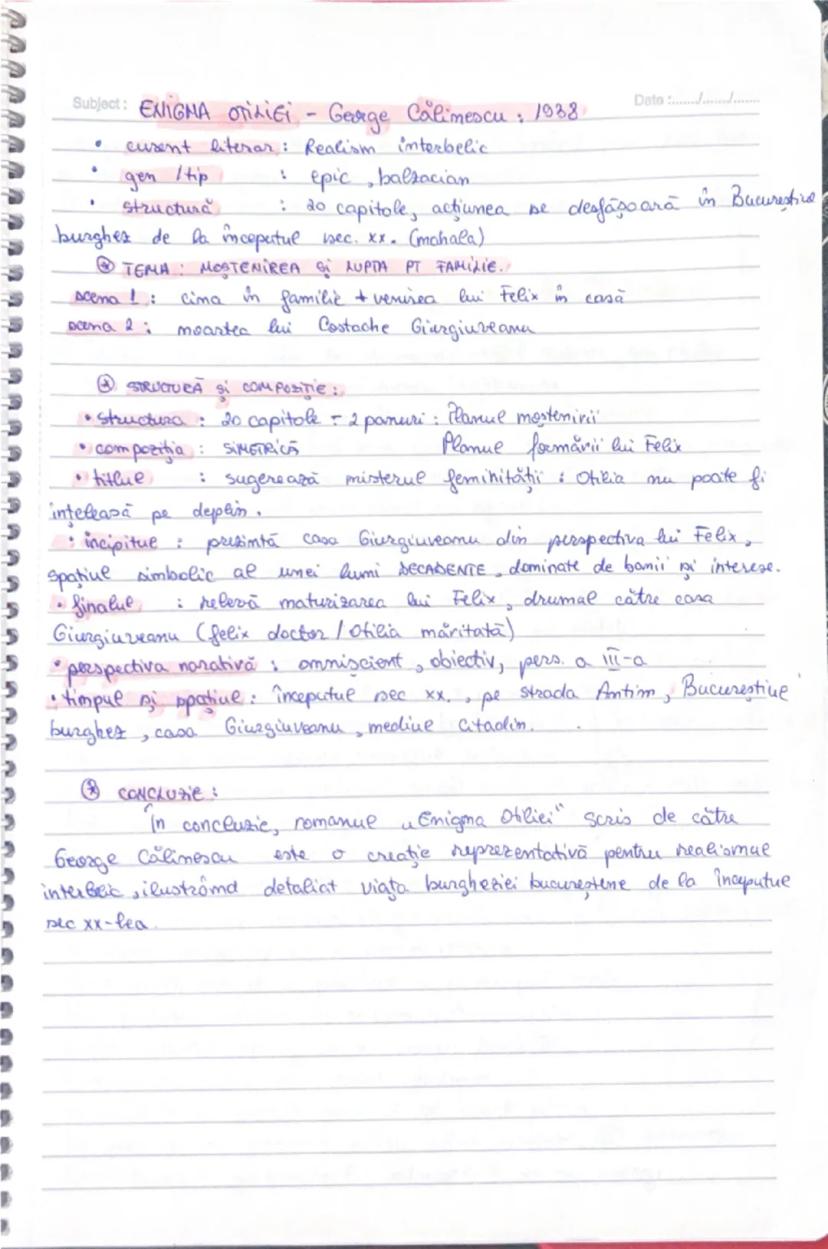 Subject: ENIGMA OTILIEI - George Călinescu; 1938 Date:....../....../......
• curent literar: Realism interbelic
• gen / tip : epic, balzacian
• structură : 20 capitole, acțiunea se desfășoară în Bucureștiul
burghez de la începutul sec. xx. (mahala)
⊛ TEMA: MOȘTENIREA și LUPTA PT FAMILIE.
scena 1: cina în familie + venirea lui Felix în casă
scena 2: moartea lui Costache Giurgiuveanu
⊛ STRUCTURĂ și COMPOZIȚIE:
• structura : 20 capitole - 2 panuri: Planul moștenirii
• compoziția : SIMETRICĂ Planul formării lui Felix
• titlue : sugerează misterul feminității: Otilia nu poate fi
ințeleasă pe deplin.
• incipitul : prezintă casa Giurgiuveanu din perspectiva lui Felix,
spațiul simbolic al unei lumi DECADENTE, dominate de banii și interese.
• finalul : relevă maturizarea lui Felix, drumul către casa
Giurgiuveanu (felix doctor / Otilia măritată)
• perspectiva narativă: omniscient, obiectiv, pers. a III-a
• timpul și spațiul: începutul sec xx., pe strada Antim, Bucureștiul
burghez, casa Giurgiuveanu, mediul citadin.
⊛ CONCLUZIE:
În concluzie, romanul „Enigma Otiliei" scris de către
George Călinescu este o creație reprezentativă pentru realismul
interbelic, ilustrând detaliat viața burgheziei bucureștene de la începutul
sec xx-lea.